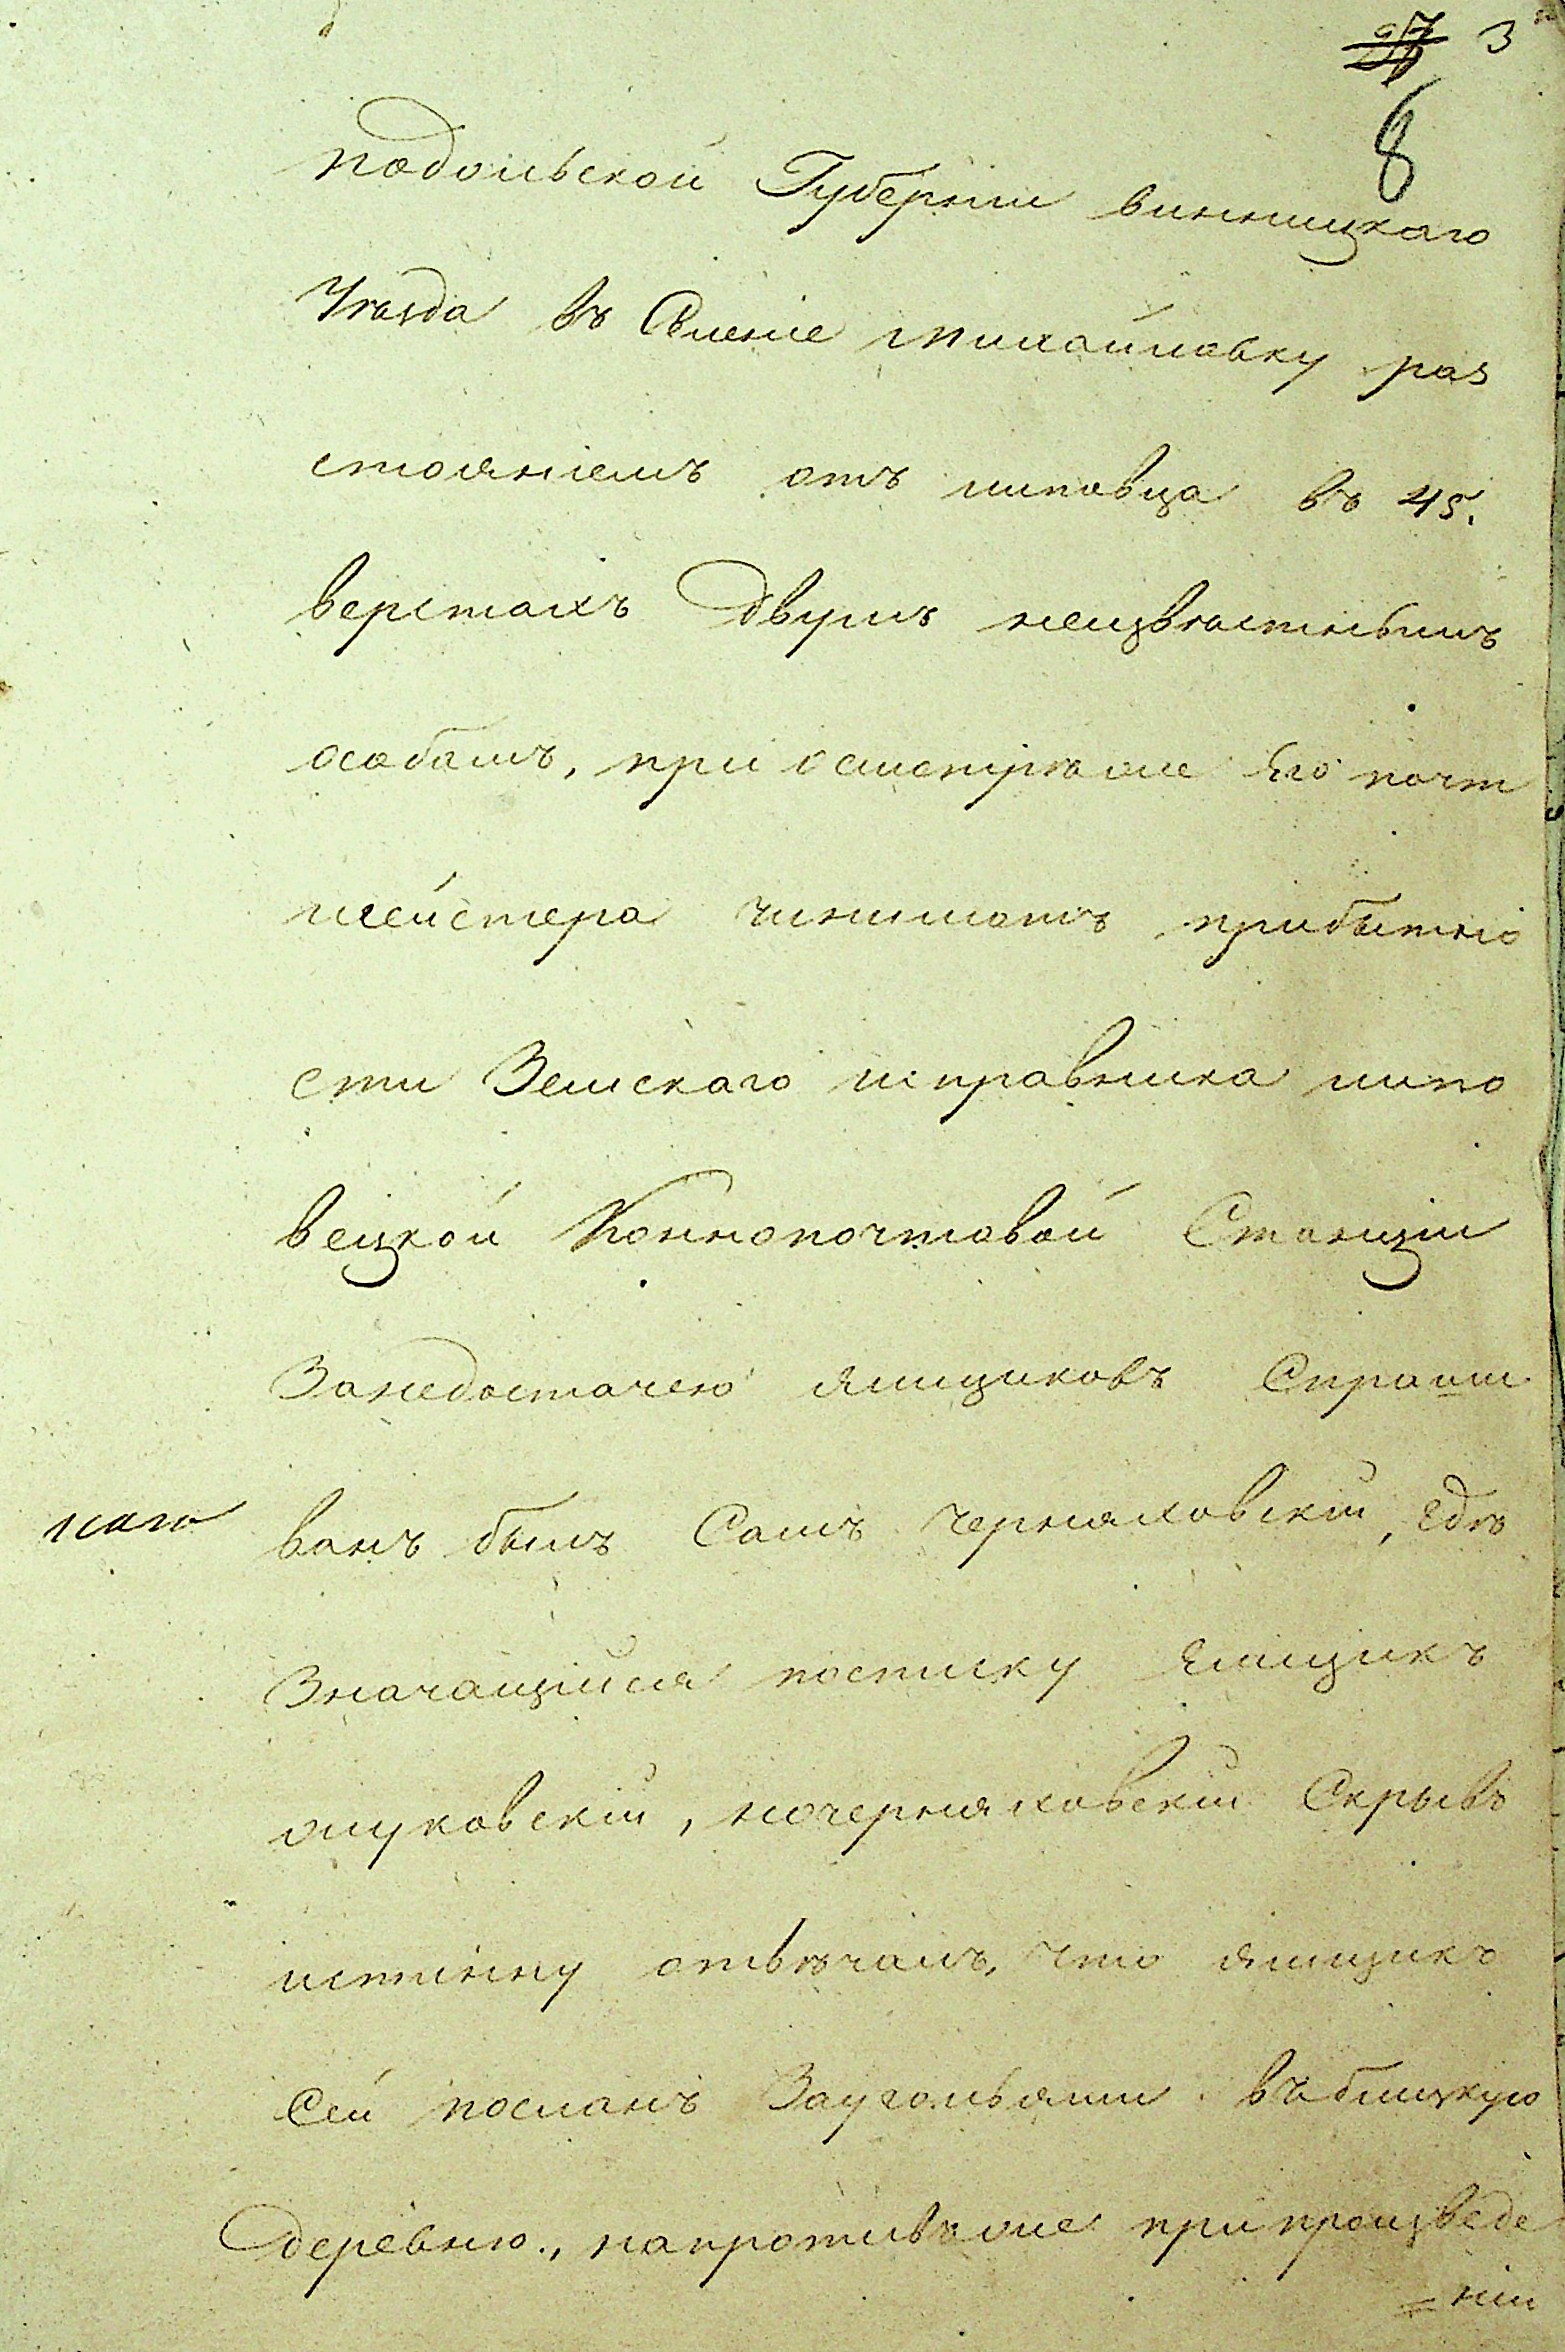 3
8
подольской Губерніи винницкаго
Уѣзда въ Селеніе михайловку раз
стояніемъ отъ липовца въ 45.
верстахъ двумъ неизвѣстнымъ
особамъ, при осмотрѣ же Его почт
мейстера чинимомъ прибытно
сти Земскаго исправника липо
вецкой Коннопочтовой Станціи
Занедостачею ямщиковъ Спраши
ванъ былъ Самъ Черняховскій, гдѣ
Значащійся посписку Ямщикъ
жуковскій, ночерняховскій Скрывъ
истинну отвѣчалъ, что ямщикъ
Сей посланъ Заугольями въблизкую
деревню., напротивъ же припроизведе
=ніи